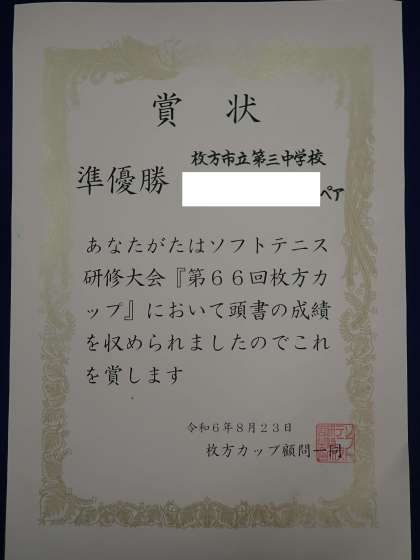 賞状
枚方市立第三中学校
準優勝
ペア
あなたがたはソフトテニス
研修大会『第66回枚方カ
ップ』において頭書の成績
を収められましたのでこれ
を賞します
令和6年8月23日
枚方カップ顧問一同